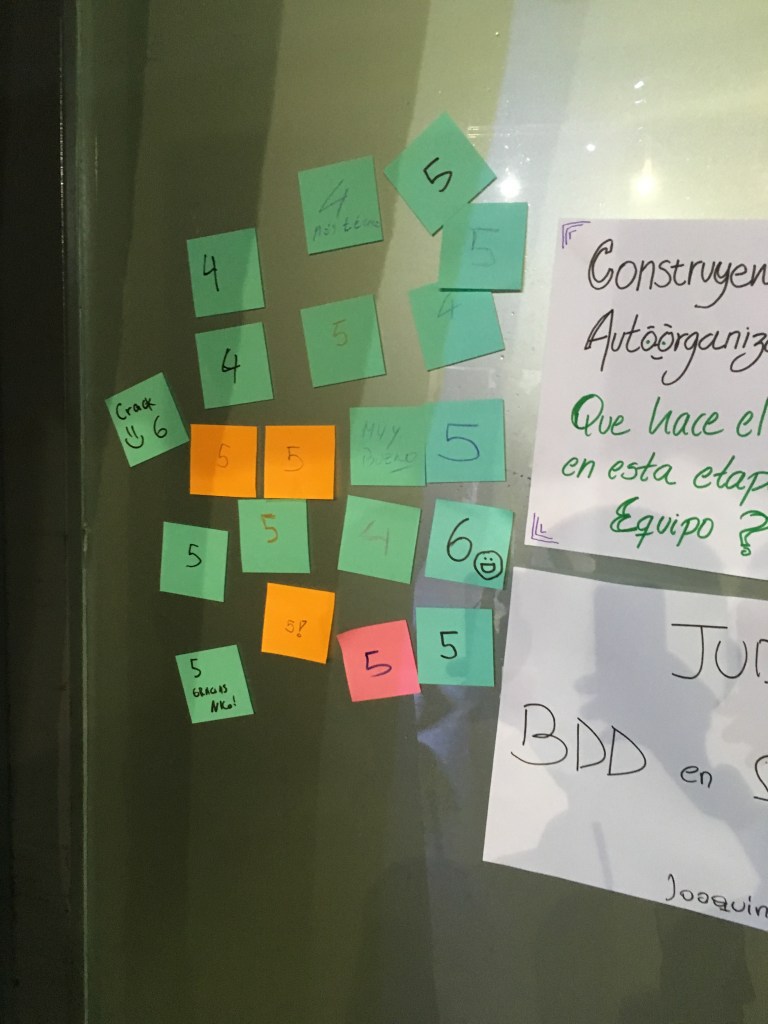 5
4
5
4
4
5
4
Crack
6
5
5
MUY
BUENO
5
5
5
4
6
5!
5
5
5
GRACIAS
NICO!
Construyen
Autoorganiza
Que hace el
en esta etap
Equipo ?
JUD
BDD en S
Joaquin